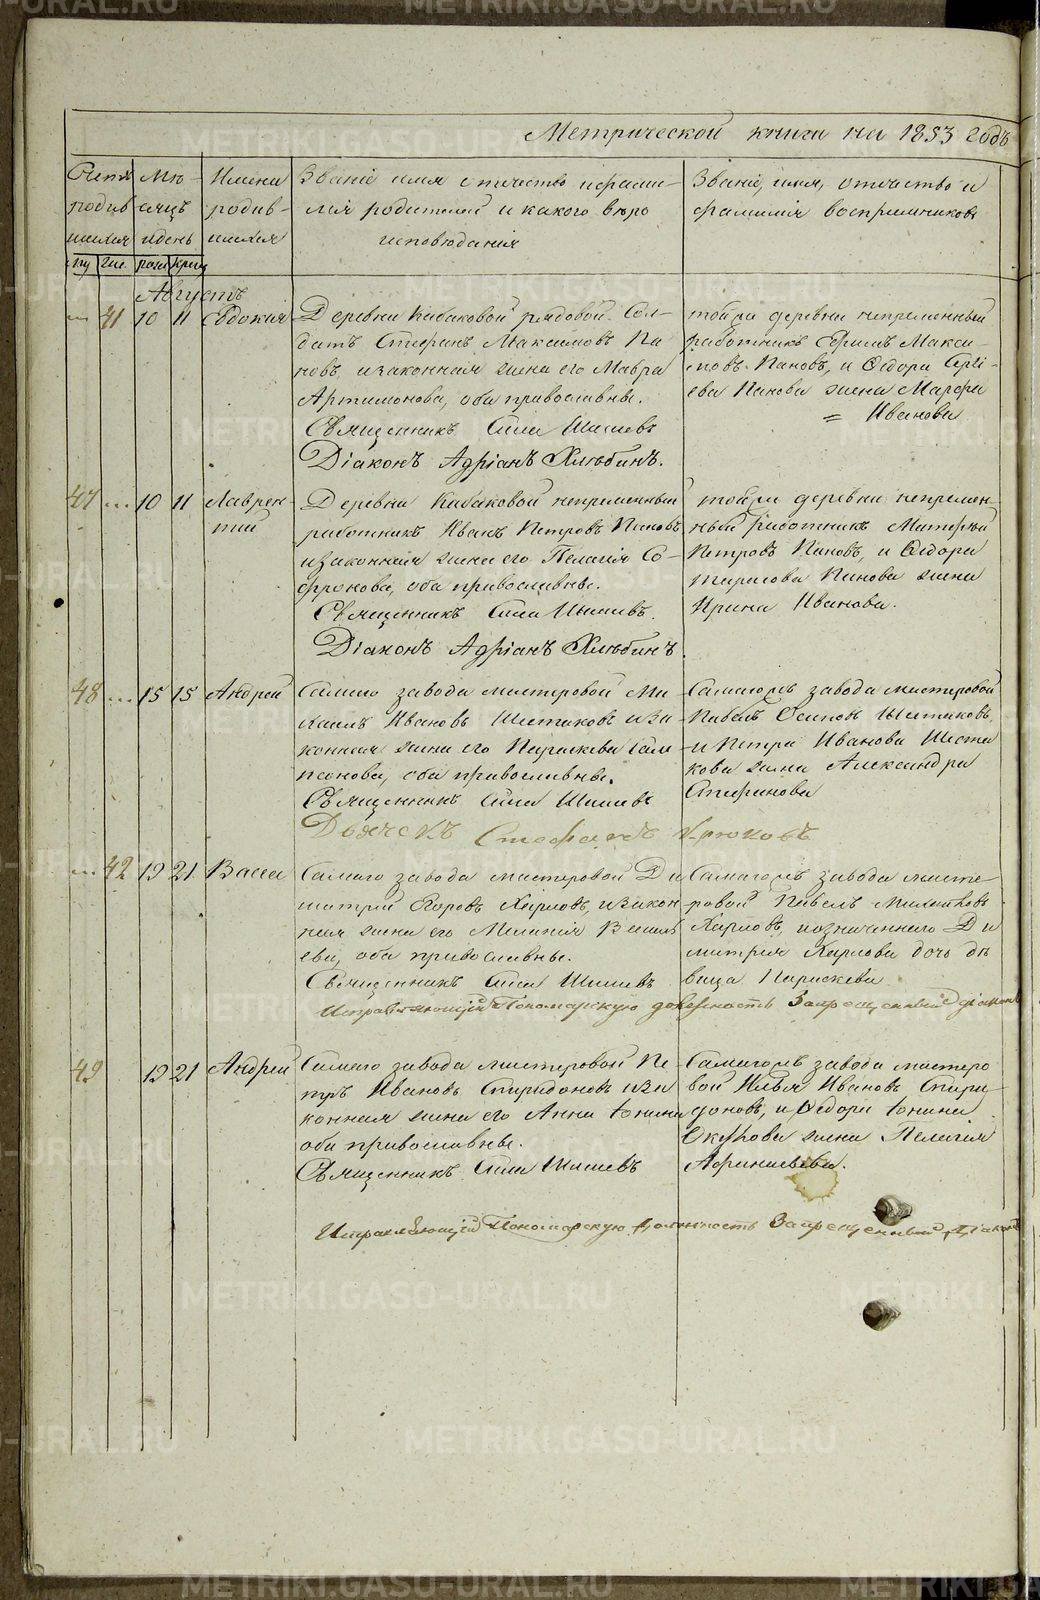 Метрической книги на 1853 годъ
Счетъ родив шихся
Мѣ- сяцъ и день
Имена родив- шихся
Званіе имя отчество и фами-
лія родителей и какого вѣро
исповѣданія
Званіе, имя, отчество и
фамилія воспріемниковъ
Августъ
41 10 11 Евдокия
Деревни Кабаковой рядовой Сол-
датъ Стефанъ Максимовъ Па
новъ, и законная жена его Мавра
Артимонова, оба православны.
Священникъ Сила Шишевъ
Діаконъ Адріанъ Хлѣбинъ.
той ра деревни непременный
работникъ Ефимъ Макси-
мовъ Пановъ, и Ѳедора
Панова жена Марфа
= Иванова
47 ... 10 11 Лаврен-
тий
Деревни Кабаковой непременный
работникъ Иванъ Петровъ Пановъ
и законная жена его Пелагія Со-
фронова, оба православны.
Священникъ Сила Шишевъ.
Діаконъ Адріанъ Хлѣбинъ.
деревни непремен-
ный работникъ Матвѣй
Петровъ Пановъ, и Ѳедора
Тарасова Панова жена
Ирина Иванова.
48 ... 15 15 Андрей
Самаго завода мастеровой Ми
хаилъ Ивановъ Шестаковъ и за
конная жена его Параскева Сам
псонова, оба православны.
Священникъ Сила Шишевъ
Дьячекъ Стефанъ Крюковъ
Самагожъ завода мастеровой
Павелъ Осиповъ Шестаковъ,
и Петра Иванова Шеста
кова жена Александра
Стефанова
42 19 21 Васса
Самаго завода мастеровой Ди
митрий Егоровъ Карповъ, и закон
ная жена его Меланія Василь
ева, оба православны.
Священникъ Сила Шишевъ
Исправляющій Пономарскую должность Запрещенный діаконъ
Самагожъ завода масте-
ровой Павелъ
Карповъ, и означеннаго Ди
митрия Карпова дочь дѣ
вица Параскева
49 19 21 Андрей
Самаго завода мастеровой Пе-
тръ Ивановъ Спиридоновъ и за
конная жена его Анна Іонина
оба православны.
Священникъ Сила Шишевъ
Самагожъ завода мастеро
вой Илья Ивановъ Спири
доновъ, и Ѳедора Іонина
Окулова жена Пелагія
Афанасьева.
Исправляющій Пономарскую должность Запрещенный Діаконъ
METRIKI.GASO-URAL.RU